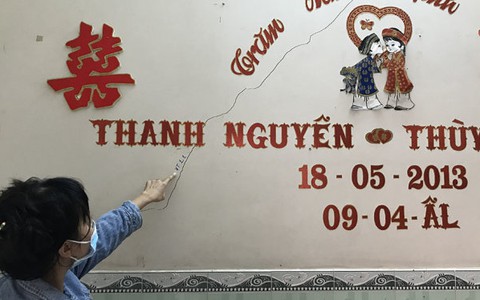 囍
Trăm
THANH NGUYÊN THÙY
18 - 05 - 2013
09 - 04 - ÂL